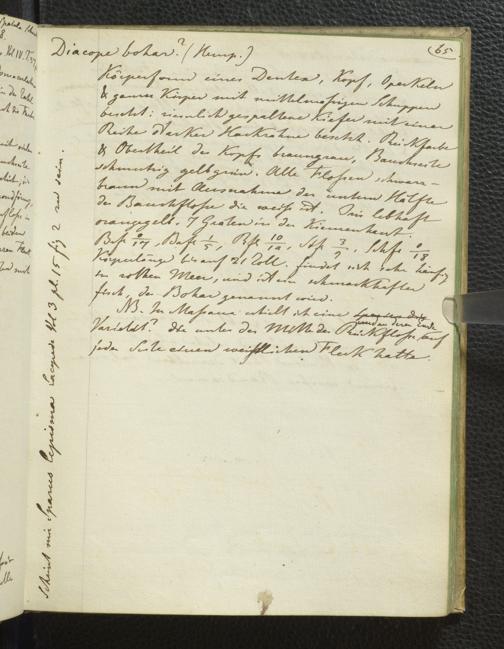 65
Diacope bohar? (Hemp.)
Körperform eines Dentex, Kopf, Operkeln
& ganzer Körper mit mittelmässigen Schuppen
besezt: ziemlich gespaltene Kiefer mit einer
Reihe starker Hackzähne besezt. Rückfarbe
& Obertheil des Kopfs braungrau, Bauchseite
schmutzig gelbgrün. Alle Flossen schwarz-
braun mit Ausnahme der untern Hälfte
der Bauchflosse die weiss ist. Iris lebhaft
orangegelb. 7 Graten in der Kiemenhaut.
Körperlänge bis auf 21 Zoll. findet sich sehr häufig
im rothen Meer, und ist ein schmackhafter
fisch, der Bohar genannt wird.
NB. In Massaua erhielt ich eine
Varietät? die unter der Mitte der Rückflosse, auf
jeder Seite einen weisslichen Fleck hatte.
Scheint mir Sparus Lepisma Lacepede Vol 3 pl. 15 fig 2 zu sein.